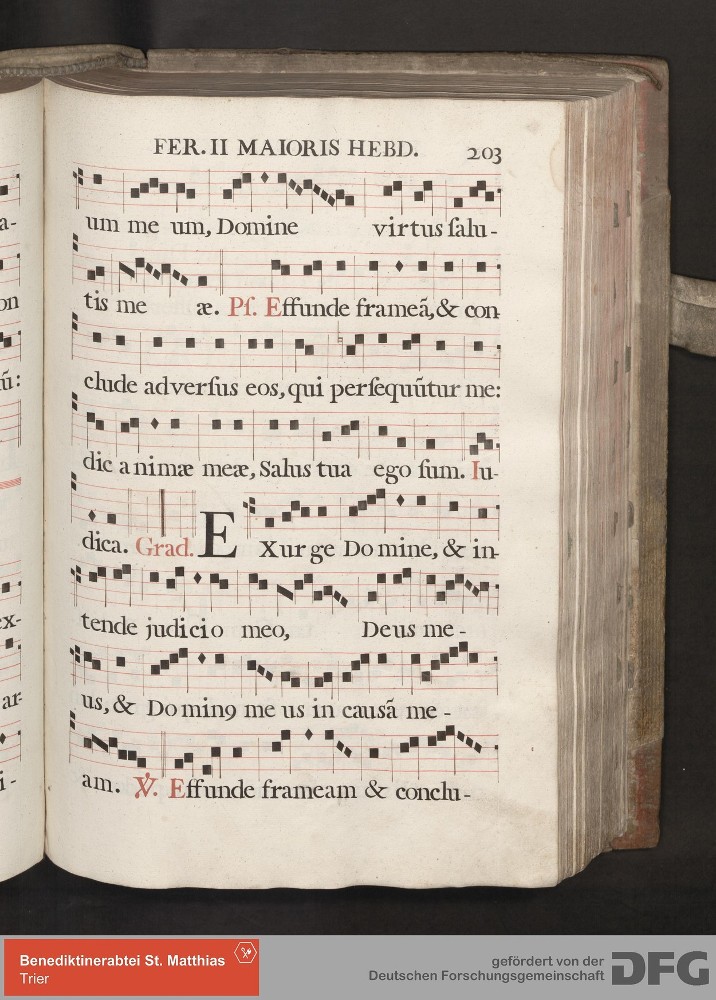 FER. II MAIORIS HEBD. 203
um me um, Domine virtus ſalu-
tis me æ. Pſ. Effunde frameã, & con-
clude adverſus eos, qui perſequũtur me:
dic animæ meæ, Salus tua ego ſum. Iu-
dica. Grad. EXurge Domine, & in-
tende judicio meo, Deus me -
us, & Dominꝰ meus in causã me -
am. ℣. Effunde frameam & conclu-
a-
on
ũ:
ex-
ar-
i-
Benediktinerabtei St. Matthias
Trier
gefördert von der
Deutschen Forschungsgemeinschaft DFG